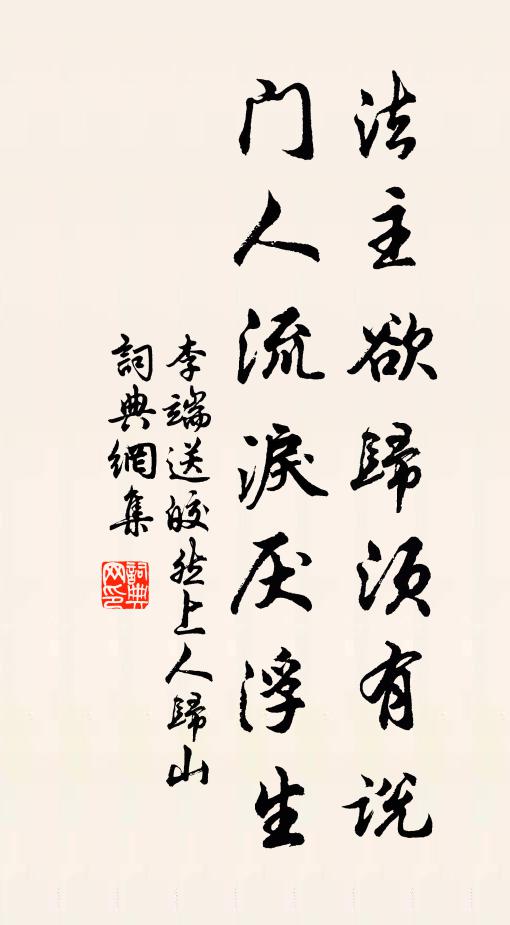 法主欲歸须有説
门人流淚厌浮生
李端送皎然上人歸山
詞典網集
詞典网印